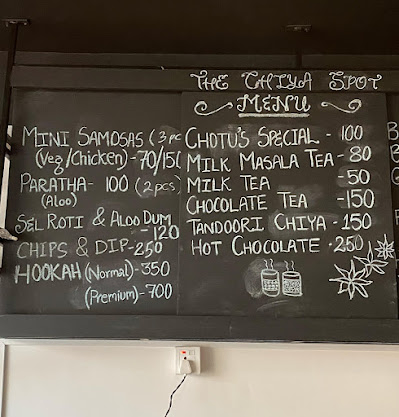 THE CHIYA SPOT
MENU
MINI SAMOSAS (3 pc
(Veg/Chicken) - 70/150
PARATHA - 100 (2 pcs)
(Aloo)
SEL ROTI & ALOO DUM
- 120
CHIPS & DIP - 250
HOOKAH (Normal) - 350
(Premium) - 700
CHOTU'S SPECIAL - 100
MILK MASALA TEA - 80
MILK TEA - 50
CHOCOLATE TEA - 150
TANDOORI CHIYA - 150
HOT CHOCOLATE - 250